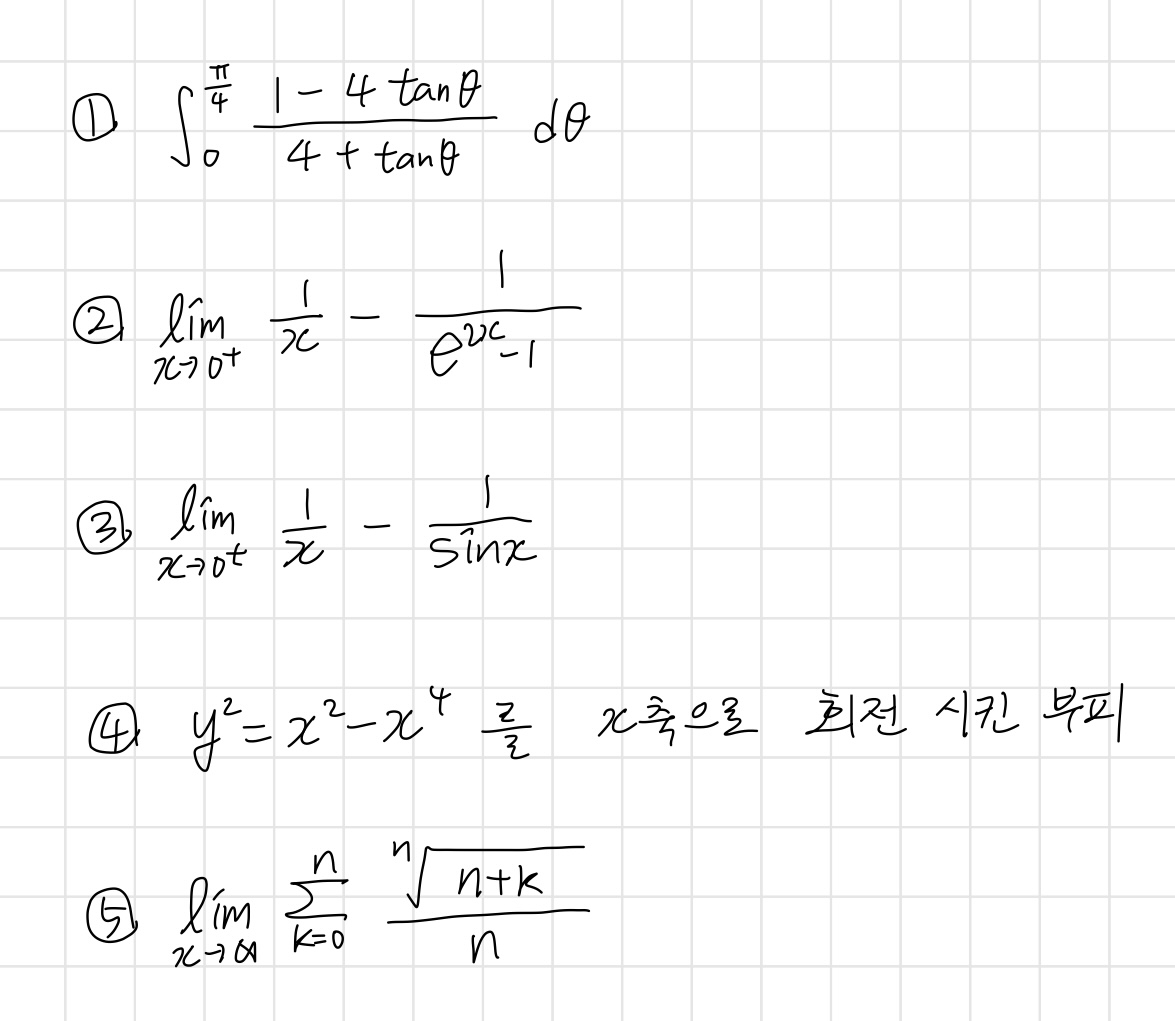 ① ∫₀^(π/4) (1 - 4 tanθ)/(4 + tanθ) dθ
② lim_(x→0⁺) 1/x - 1/(e^(2x) - 1)
③ lim_(x→0⁺) 1/x - 1/sinx
④ y² = x² - x⁴ 를 x축으로 회전 시킨 부피
⑤ lim_(x→∞) Σ_(k=0)^n ⁿ√(n+k)/n